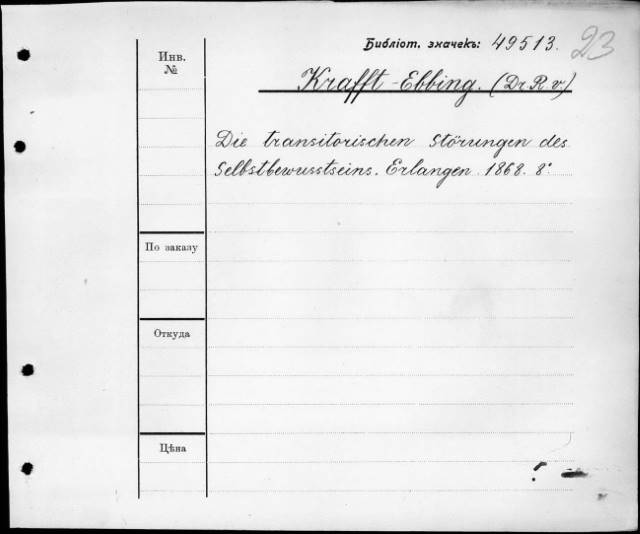 Библіот. значекъ: 49513.
23
Инв.
№
Krafft-Ebbing. (Dr R. v.)
Die transitorischen Störungen des
Selbstbewusstseins. Erlangen. 1868. 8°.
По заказу
Откуда
Цѣна